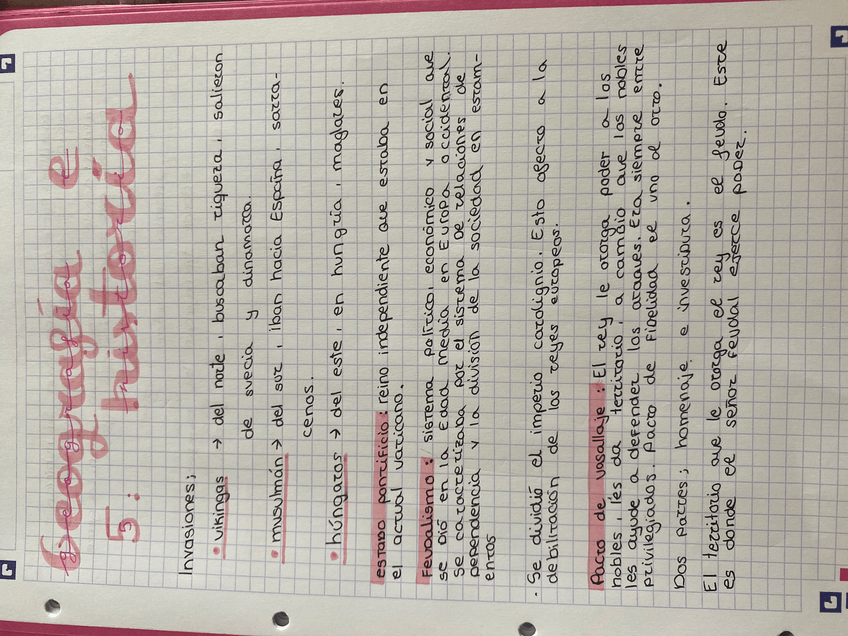 Geografía e
5: historia
Invasiones;
• vikingos → del norte, buscaban riqueza, salieron
de suecia y dinamarca.
• musulmán → del sur, iban hacia España, sarra-
cenos.
• húngaros → del este, en hungría, magiares.
estado pontificio: reino independiente que estaba en
el actual vaticano.
Feudalismo: sistema político, económico y social que
se dió en la Edad media en Europa occidental.
Se caracterizaba por el sistema de relaciones de
dependencia y la división de la sociedad en estam-
entos
· Se dividió el imperio carolignio. Esto afecto a la
debilitación de los reyes europeos.
Pacto de vasallaje: El rey le otorga poder a los
nobles, les da territorio, a cambio que los nobles
les ayude a defender los ataques. Era siempre entre
privilegiados. Pacto de fidelidad el uno al otro.
Dos partes; homenaje e investidura.
El territorio que le otorga el rey es el feudo. Este
es donde el señor feudal ejerce poder.